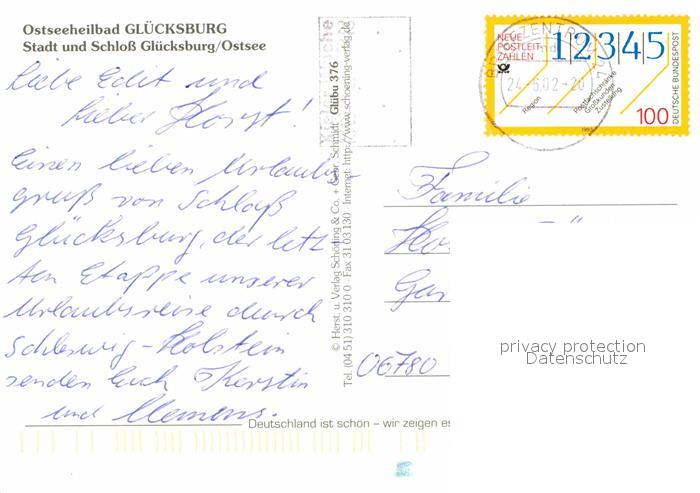 Ostseeheilbad GLÜCKSBURG
Stadt und Schloß Glücksburg/Ostsee
Liebe Edit und
lieber Horst!
Einen lieben Urlaubs-
gruß von Schloß
Glücksburg, der letz
ten Etappe unserer
Urlaubsreise durch
Schleswig-Holstein
senden Euch Kerstin
und Klemens.
© Herst. u. Verlag Schöning & Co. + Gebr. Schmidt Glübu 376
Tel. (04 51) 310 310 0 · Fax 31 03 130 Internet: http://www.schoening-verlag.de
NEUE
POSTLEIT
ZAHLEN
12345
Region
Postfachschränke
Großkunden
Zustellung
100
DEUTSCHE BUNDESPOST
1993
Familie
— " 
Ho
Gar
06780
privacy protection
Datenschutz
Deutschland ist schön – wir zeigen es